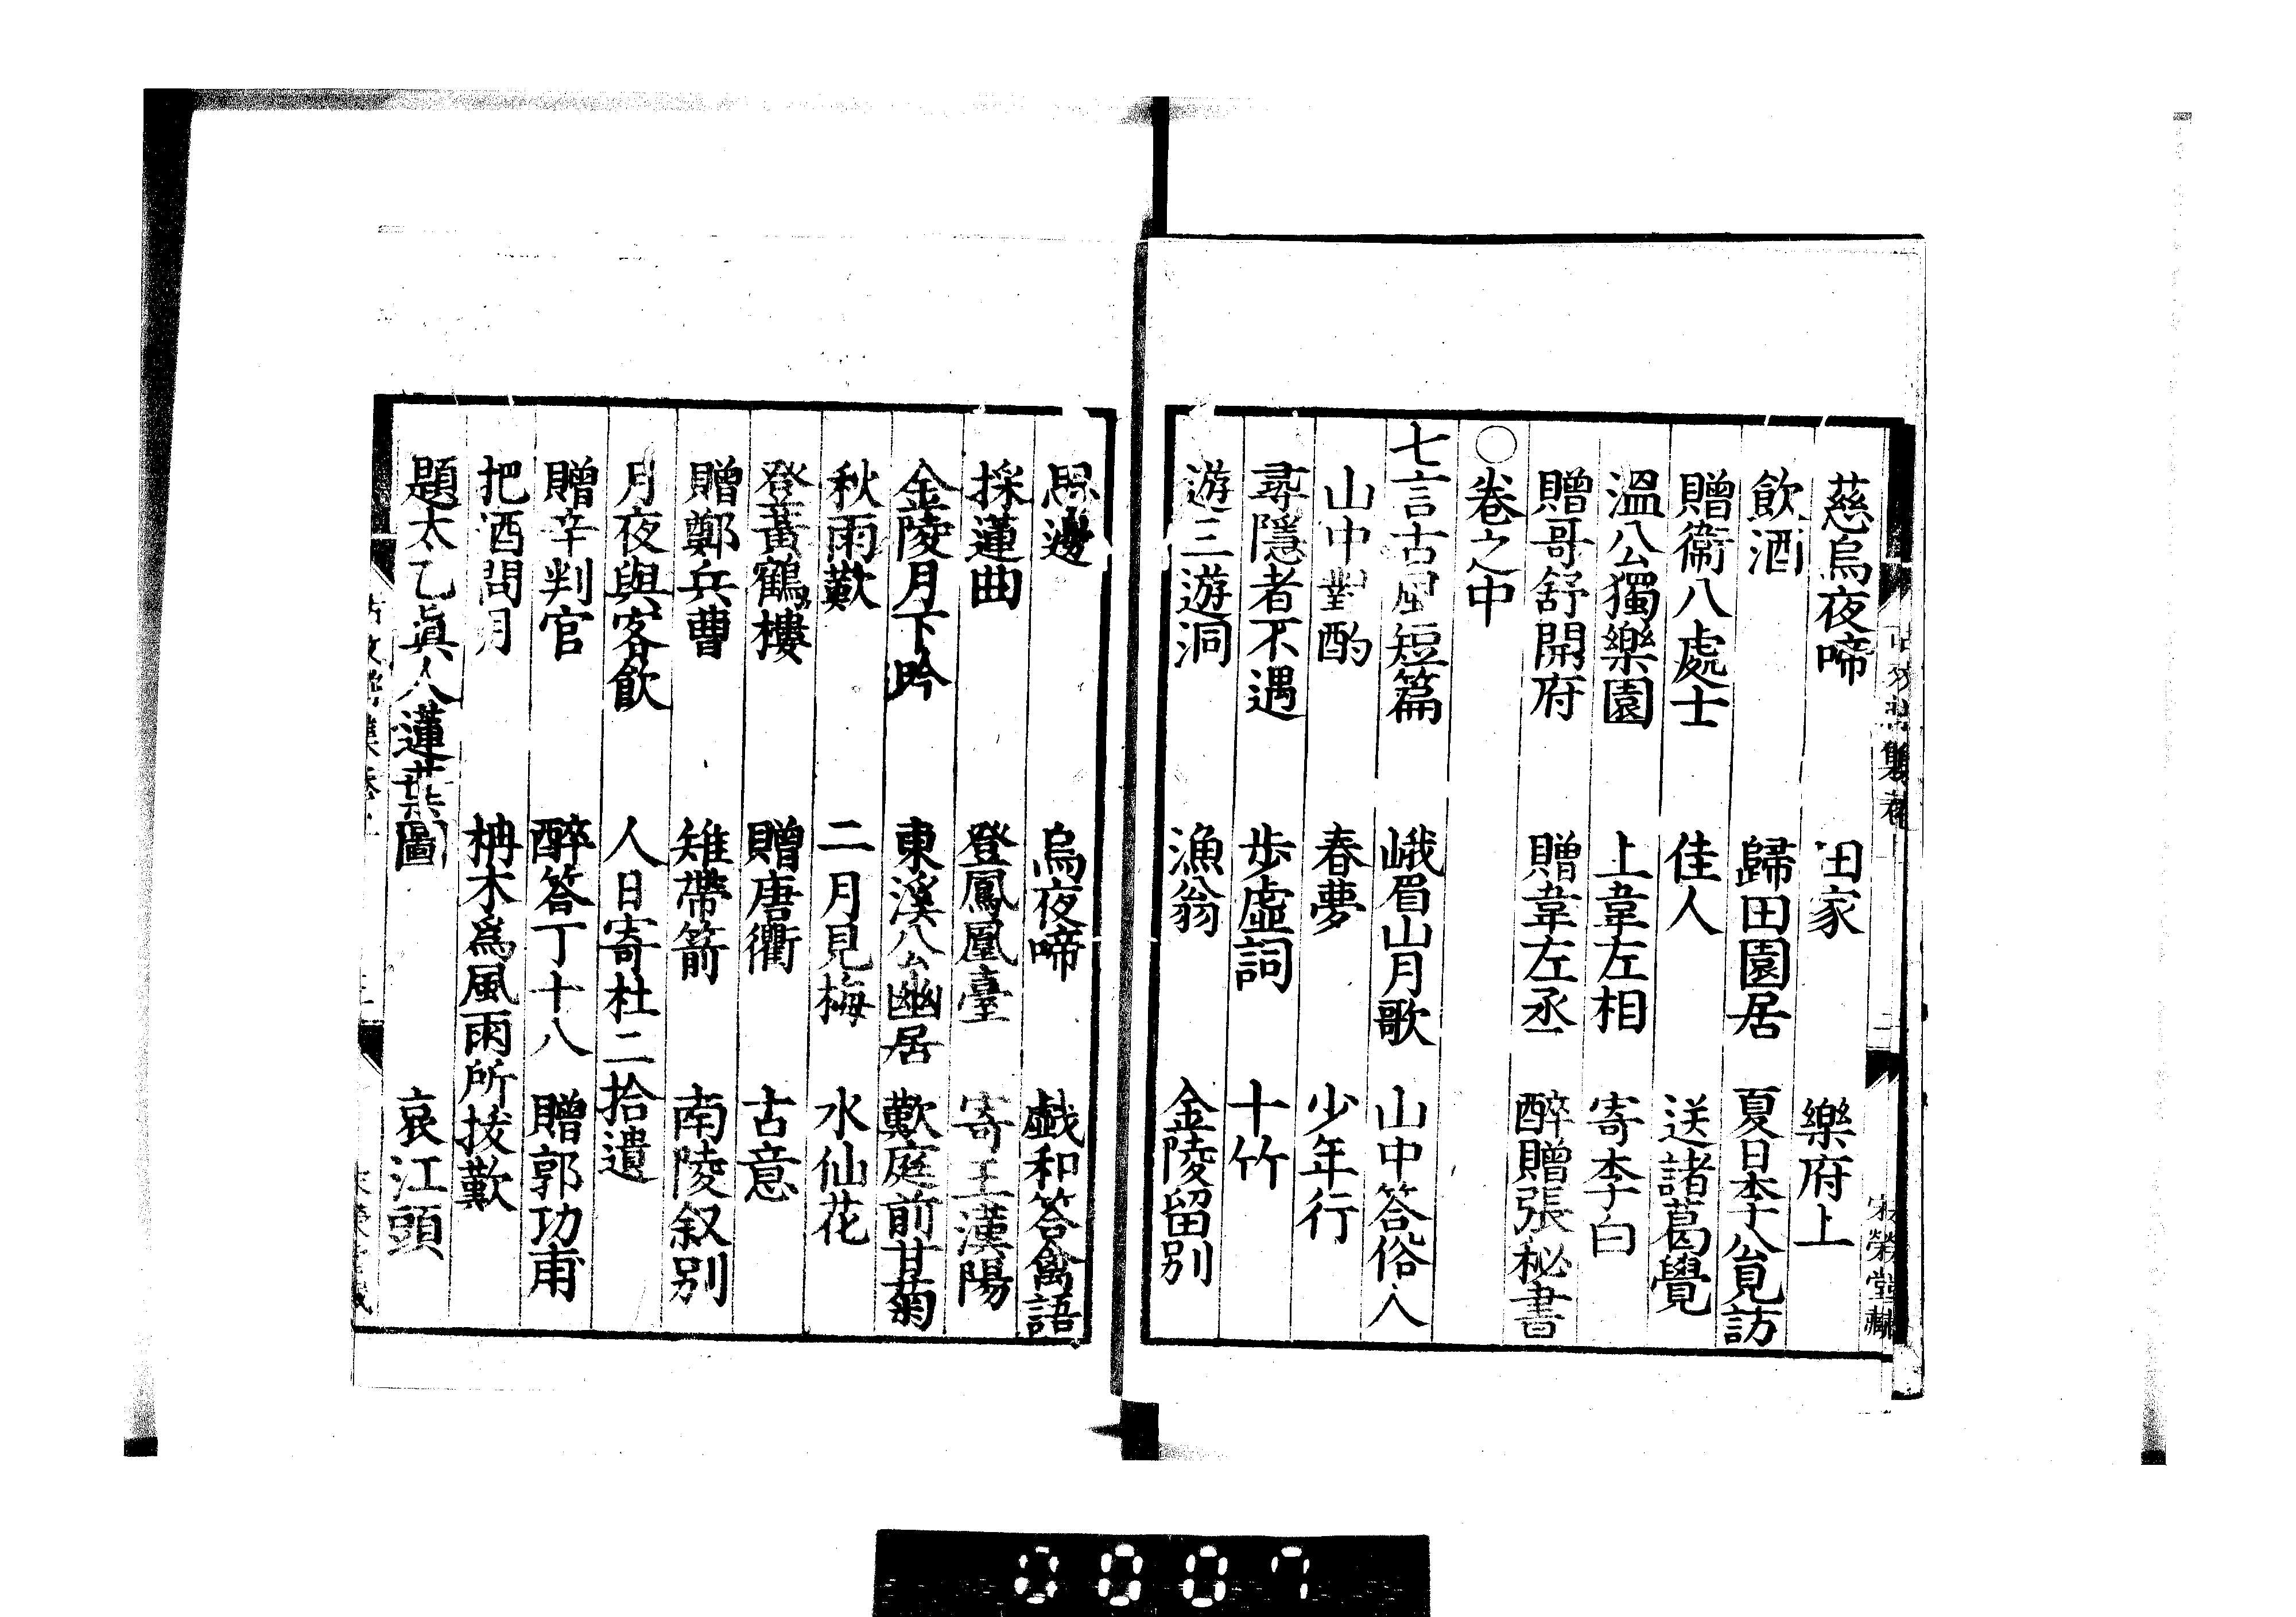 慈烏夜啼　田家　樂府上
飲酒　歸田園居　夏日李公見訪
贈衞八處士　佳人　送諸葛覺
溫公獨樂園　上韋左相　寄李白
贈哥舒開府　贈韋左丞　醉贈張秘書
○卷之中
七言古風短篇　峨眉山月歌　山中答俗人
山中對酌　春夢　少年行
尋隱者不遇　步虛詞　十竹
遊三遊洞　漁翁　金陵留別
思邊　烏夜啼　戯和答禽語
採蓮曲　登鳳凰臺　寄王漢陽
金陵月下吟　東溪公幽居　歎庭前甘菊
秋雨歎　二月見梅　水仙花
登黃鶴樓　贈唐衢　古意
贈鄭兵曹　雉帶箭　南陵叙别
月夜與客飮　人日寄杜二拾遺
贈辛判官　醉答丁十八　贈郭功甫
把酒問月　柟木爲風雨所拔歎
題太乙眞人蓮葉圖　哀江頭
0007